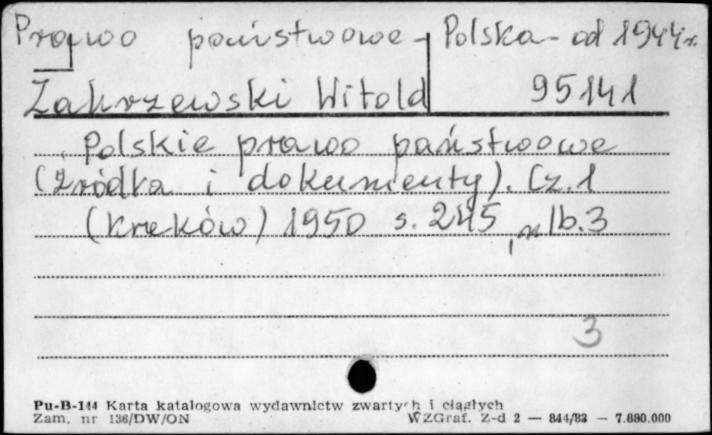 Prawo państwowe - Polska - od 1944r.
Zakrzewski Witold 95141
Polskie prawo państwowe
(źródła i dokumenty). Cz. 1
(Kraków) 1950 s. 245, nlb. 3
3
Pu-B-144 Karta katalogowa wydawnictw zwartych i ciągłych
Zam. nr 136/DW/ON WZGraf. Z-d 2 — 844/83 — 7.880.000